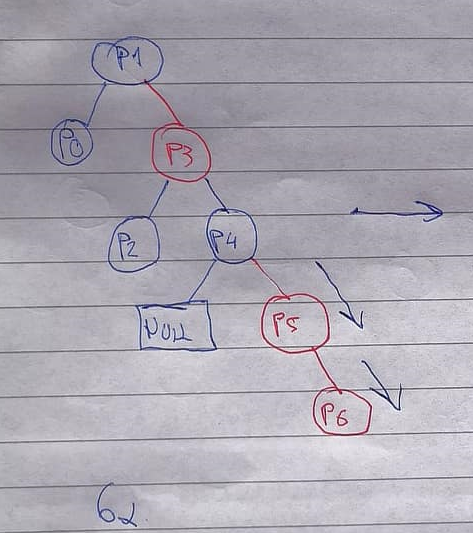 P1
P0
P3
P2
P4
NULL
P5
P6